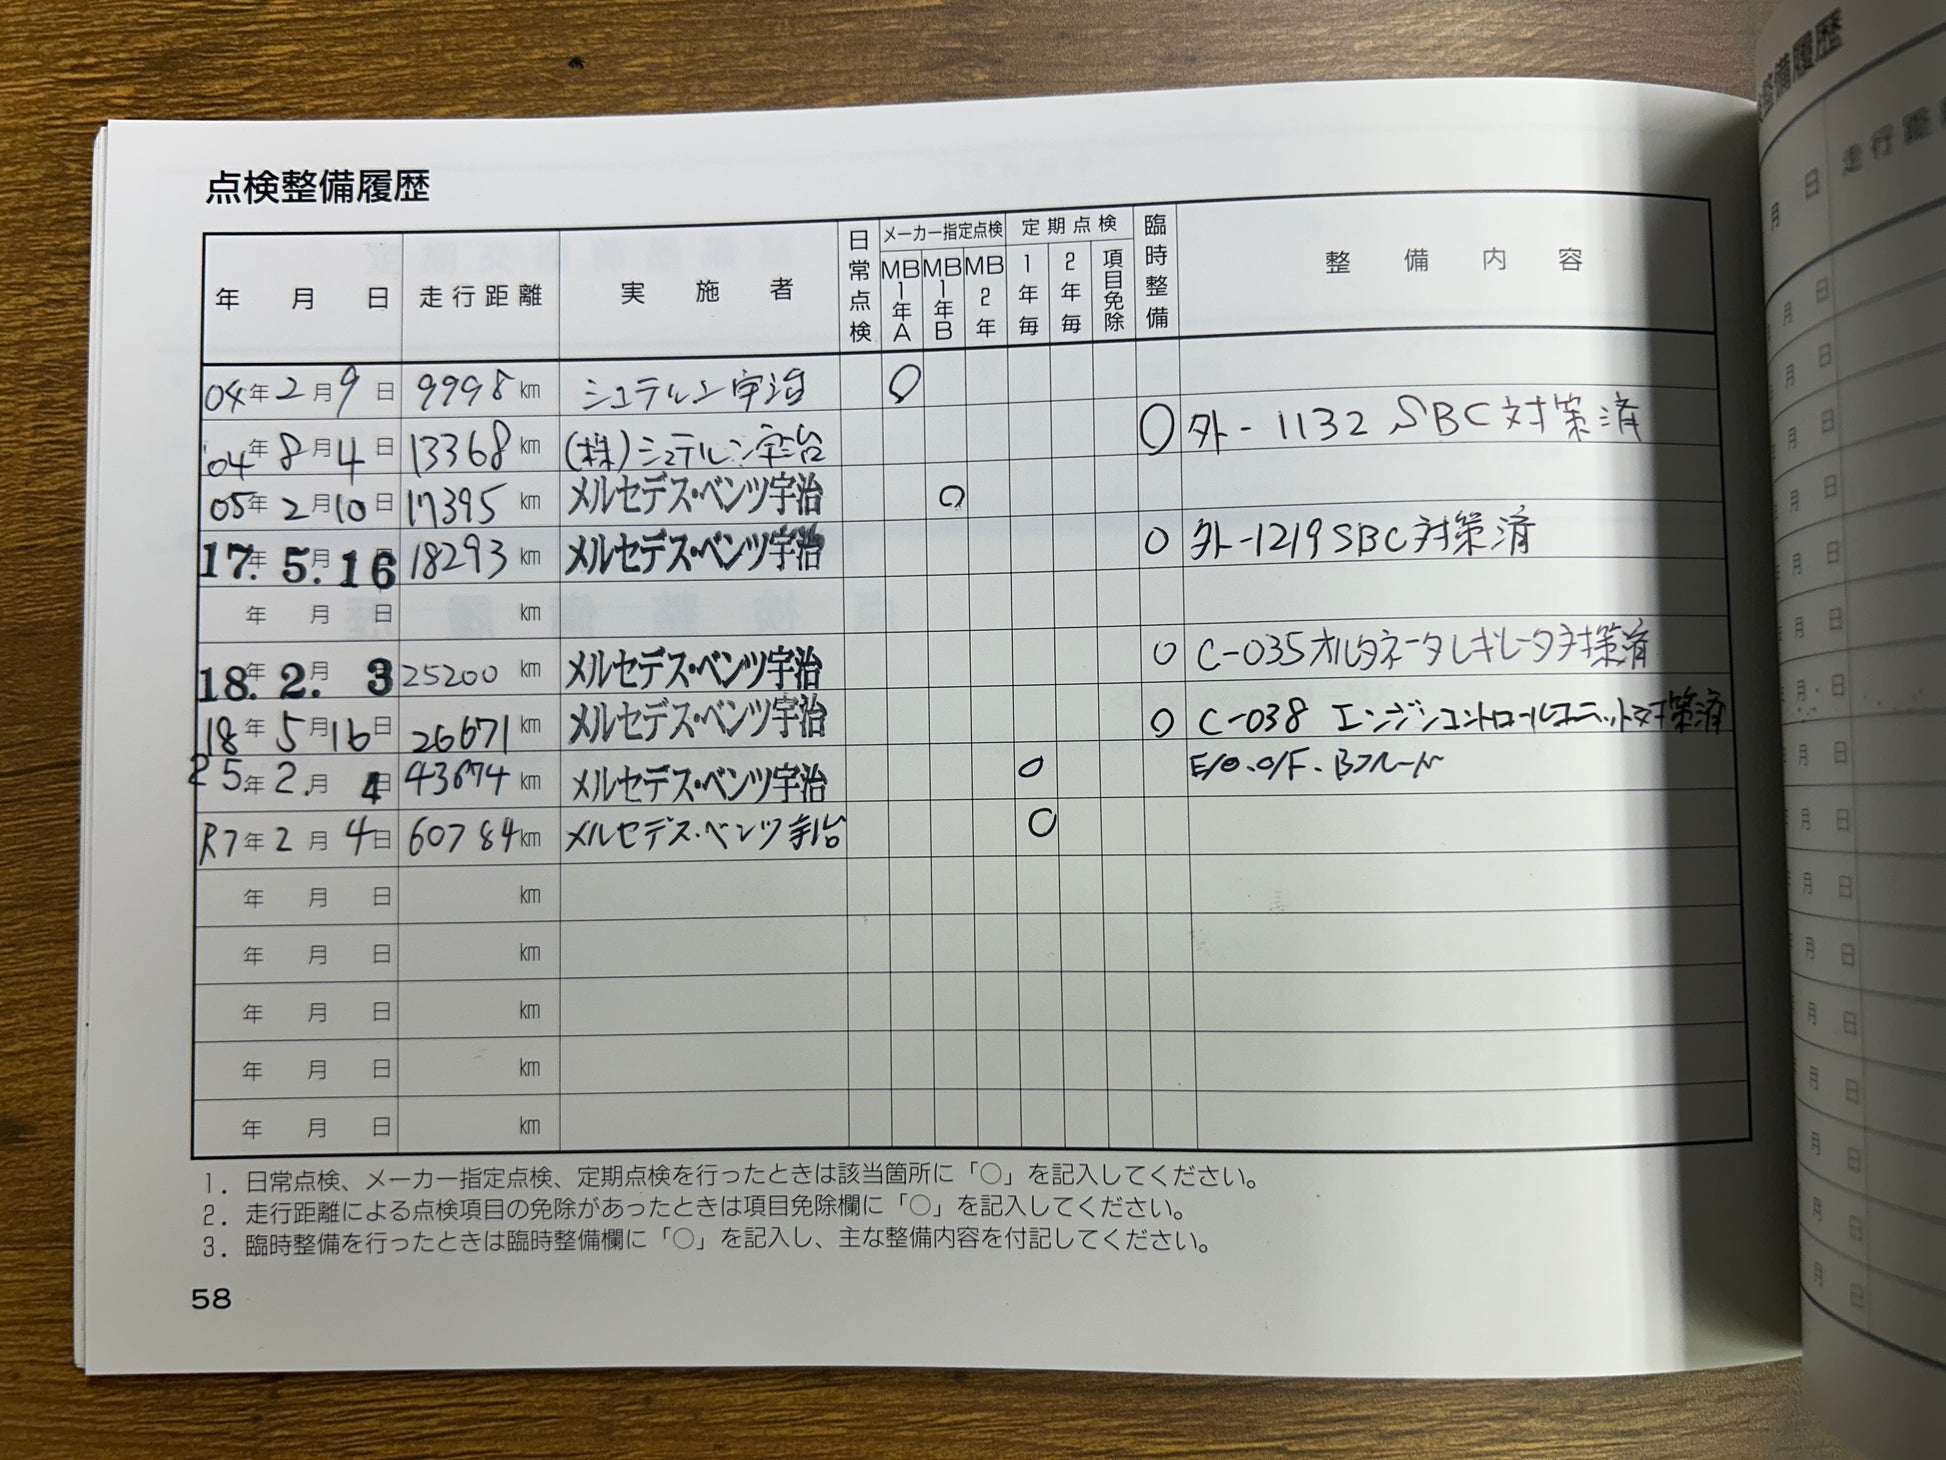 点検整備履歴
年 月 日 走行距離 実施者 日常点検 メーカー指定点検 MB1年A MB1年B MB2年 定期点検 1年毎 2年毎 項目免除 臨時整備 整備内容
04年2月9日 9998km シュテルン宇治 ○
04年8月4日 13368km (株)シュテルン宇治 ○ 外-1132 SBC対策済
05年2月10日 17395km メルセデス・ベンツ宇治 ○
17.年5.月16日 18293km メルセデス・ベンツ宇治 ○ 外-1219 SBC対策済
年 月 日 km
18.年2.月3日 25200km メルセデス・ベンツ宇治 ○ C-035オルタネータレギレータ対策済
18年5月16日 26671km メルセデス・ベンツ宇治 ○ C-038 エンジンコントロールユニット対策済
25年2.月4日 43674km メルセデス・ベンツ宇治 ○ E/O.O/F.Bフルード
R7年2月4日 60784km メルセデス・ベンツ宇治 ○
年 月 日 km
年 月 日 km
年 月 日 km
年 月 日 km
年 月 日 km
1. 日常点検、メーカー指定点検、定期点検を行ったときは該当箇所に「○」を記入してください。
2. 走行距離による点検項目の免除があったときは項目免除欄に「○」を記入してください。
3. 臨時整備を行ったときは臨時整備欄に「○」を記入し、主な整備内容を付記してください。
58